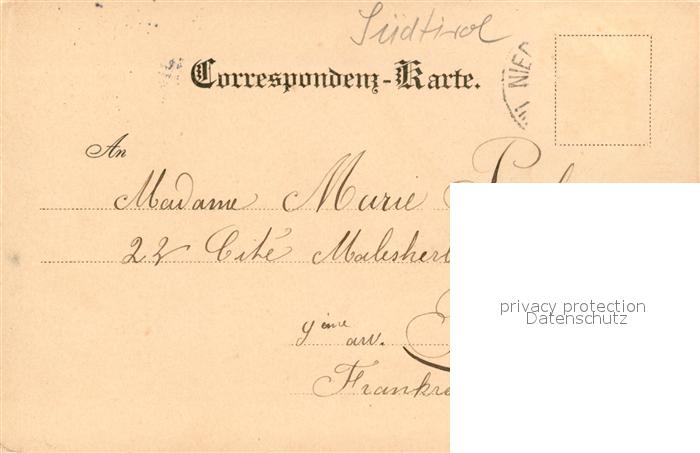 Südtirol
Correspondenz-Karte.
NIED
An
Madame Marie
22 Cité Malesherb
9ème arr.
Frankre
privacy protection
Datenschutz